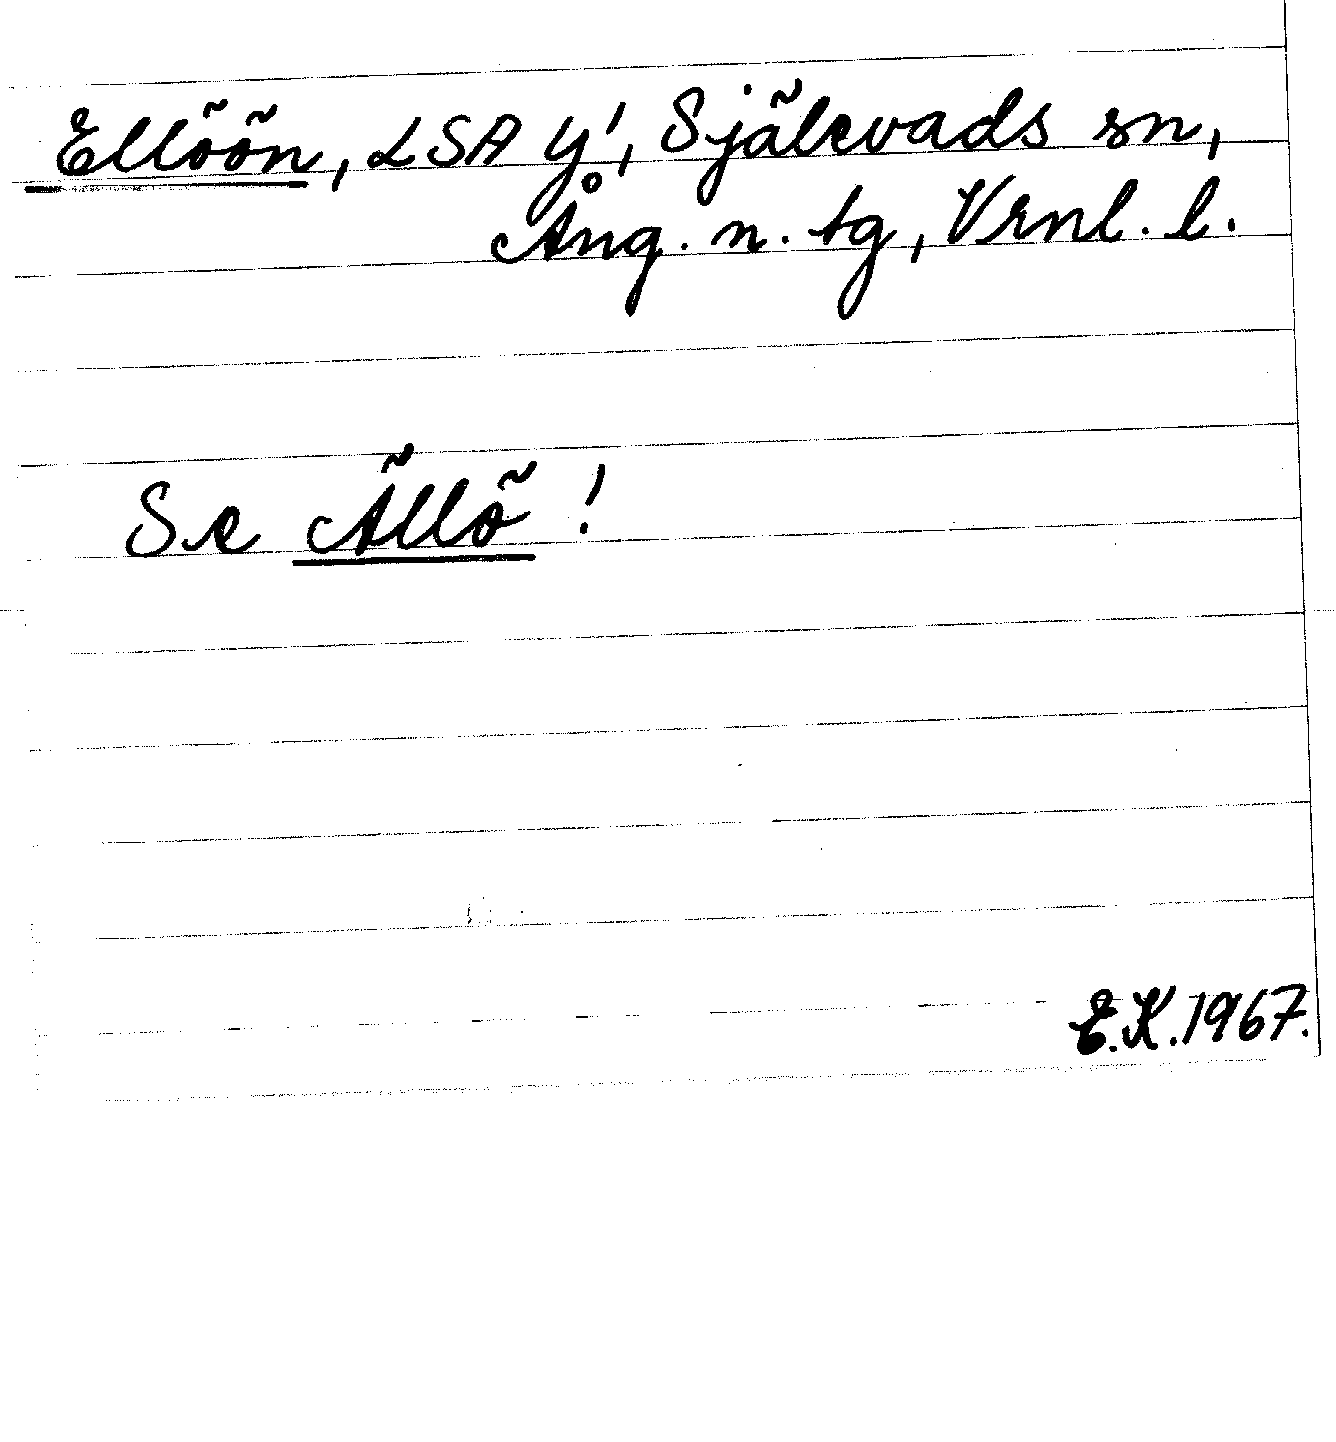 Ellöön, LSA y!, Själevads sn,
Ång. n. tg, Vrnl. l.
Se Ällö!
E.K.1967.